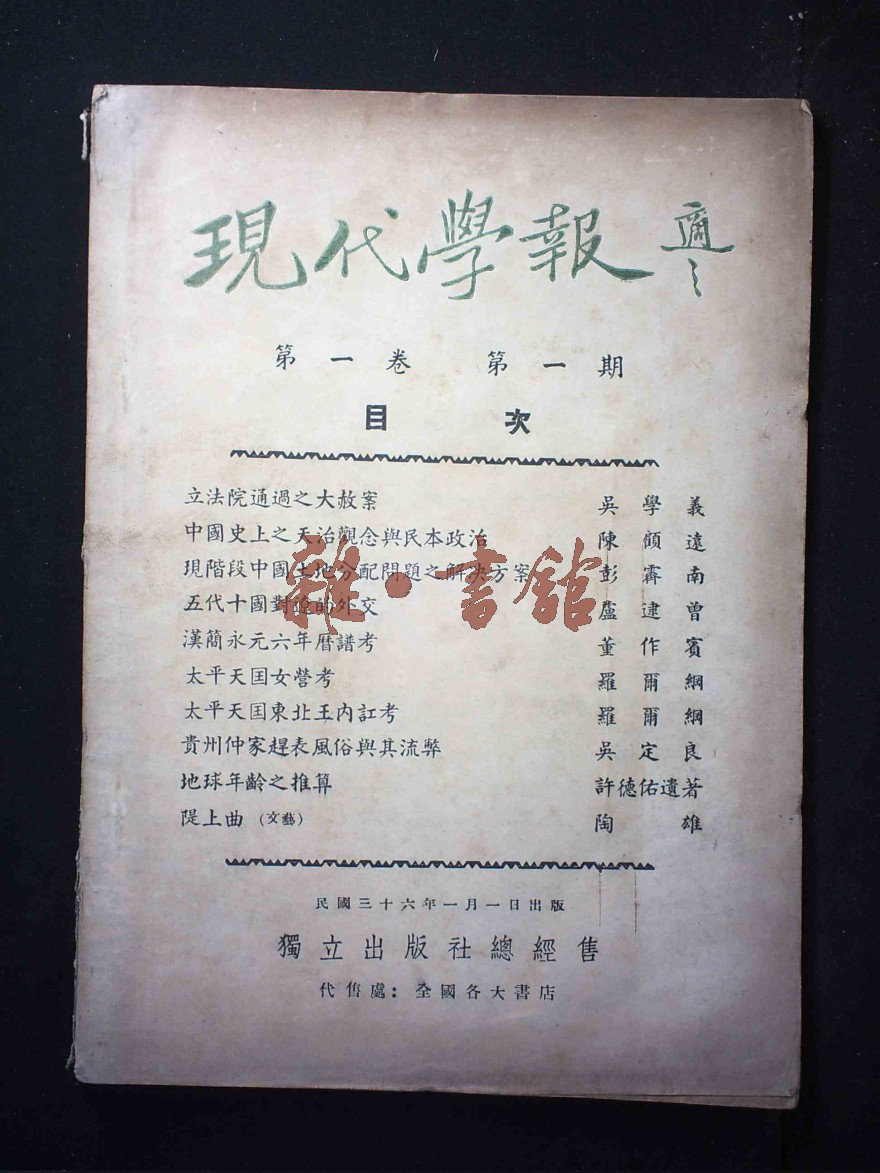 現代學報 適之
第一卷 第一期
目次
立法院通過之大赦案 吳學義
中國史上之天治觀念與民本政治 陳顧遠
現階段中國土地分配問題之解決方案 彭霽南
五代十國對遼的外交 盧逮曾
漢簡永元六年曆譜考 董作賓
太平天囯女營考 羅爾綱
太平天囯東北王內訌考 羅爾綱
貴州仲家趕表風俗與其流弊 吳定良
地球年齡之推算 許德佑遺著
隄上曲 (文藝) 陶雄
雜·書館
民國三十六年一月一日出版
獨立出版社總經售
代售處：全國各大書店